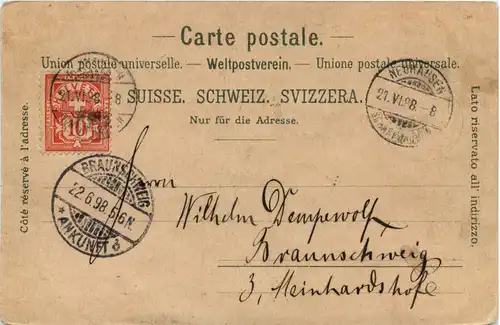 Carte postale.
Union postale universelle. — Weltpostverein. — Unione postale universale.
SUISSE. SCHWEIZ. SVIZZERA.
Nur für die Adresse.
Côté réservé à l'adresse.
Lato riservato all' indirizzo.
10
21.VI.98.-8
NEUHAUSEN
21.VI.98.-8
BRAUNSCHWEIG
22.6.98.5-6N.
* ANKUNFT
Herrn
Wilhelm Dempewolf,
Braunschweig
3, Meinhardshof